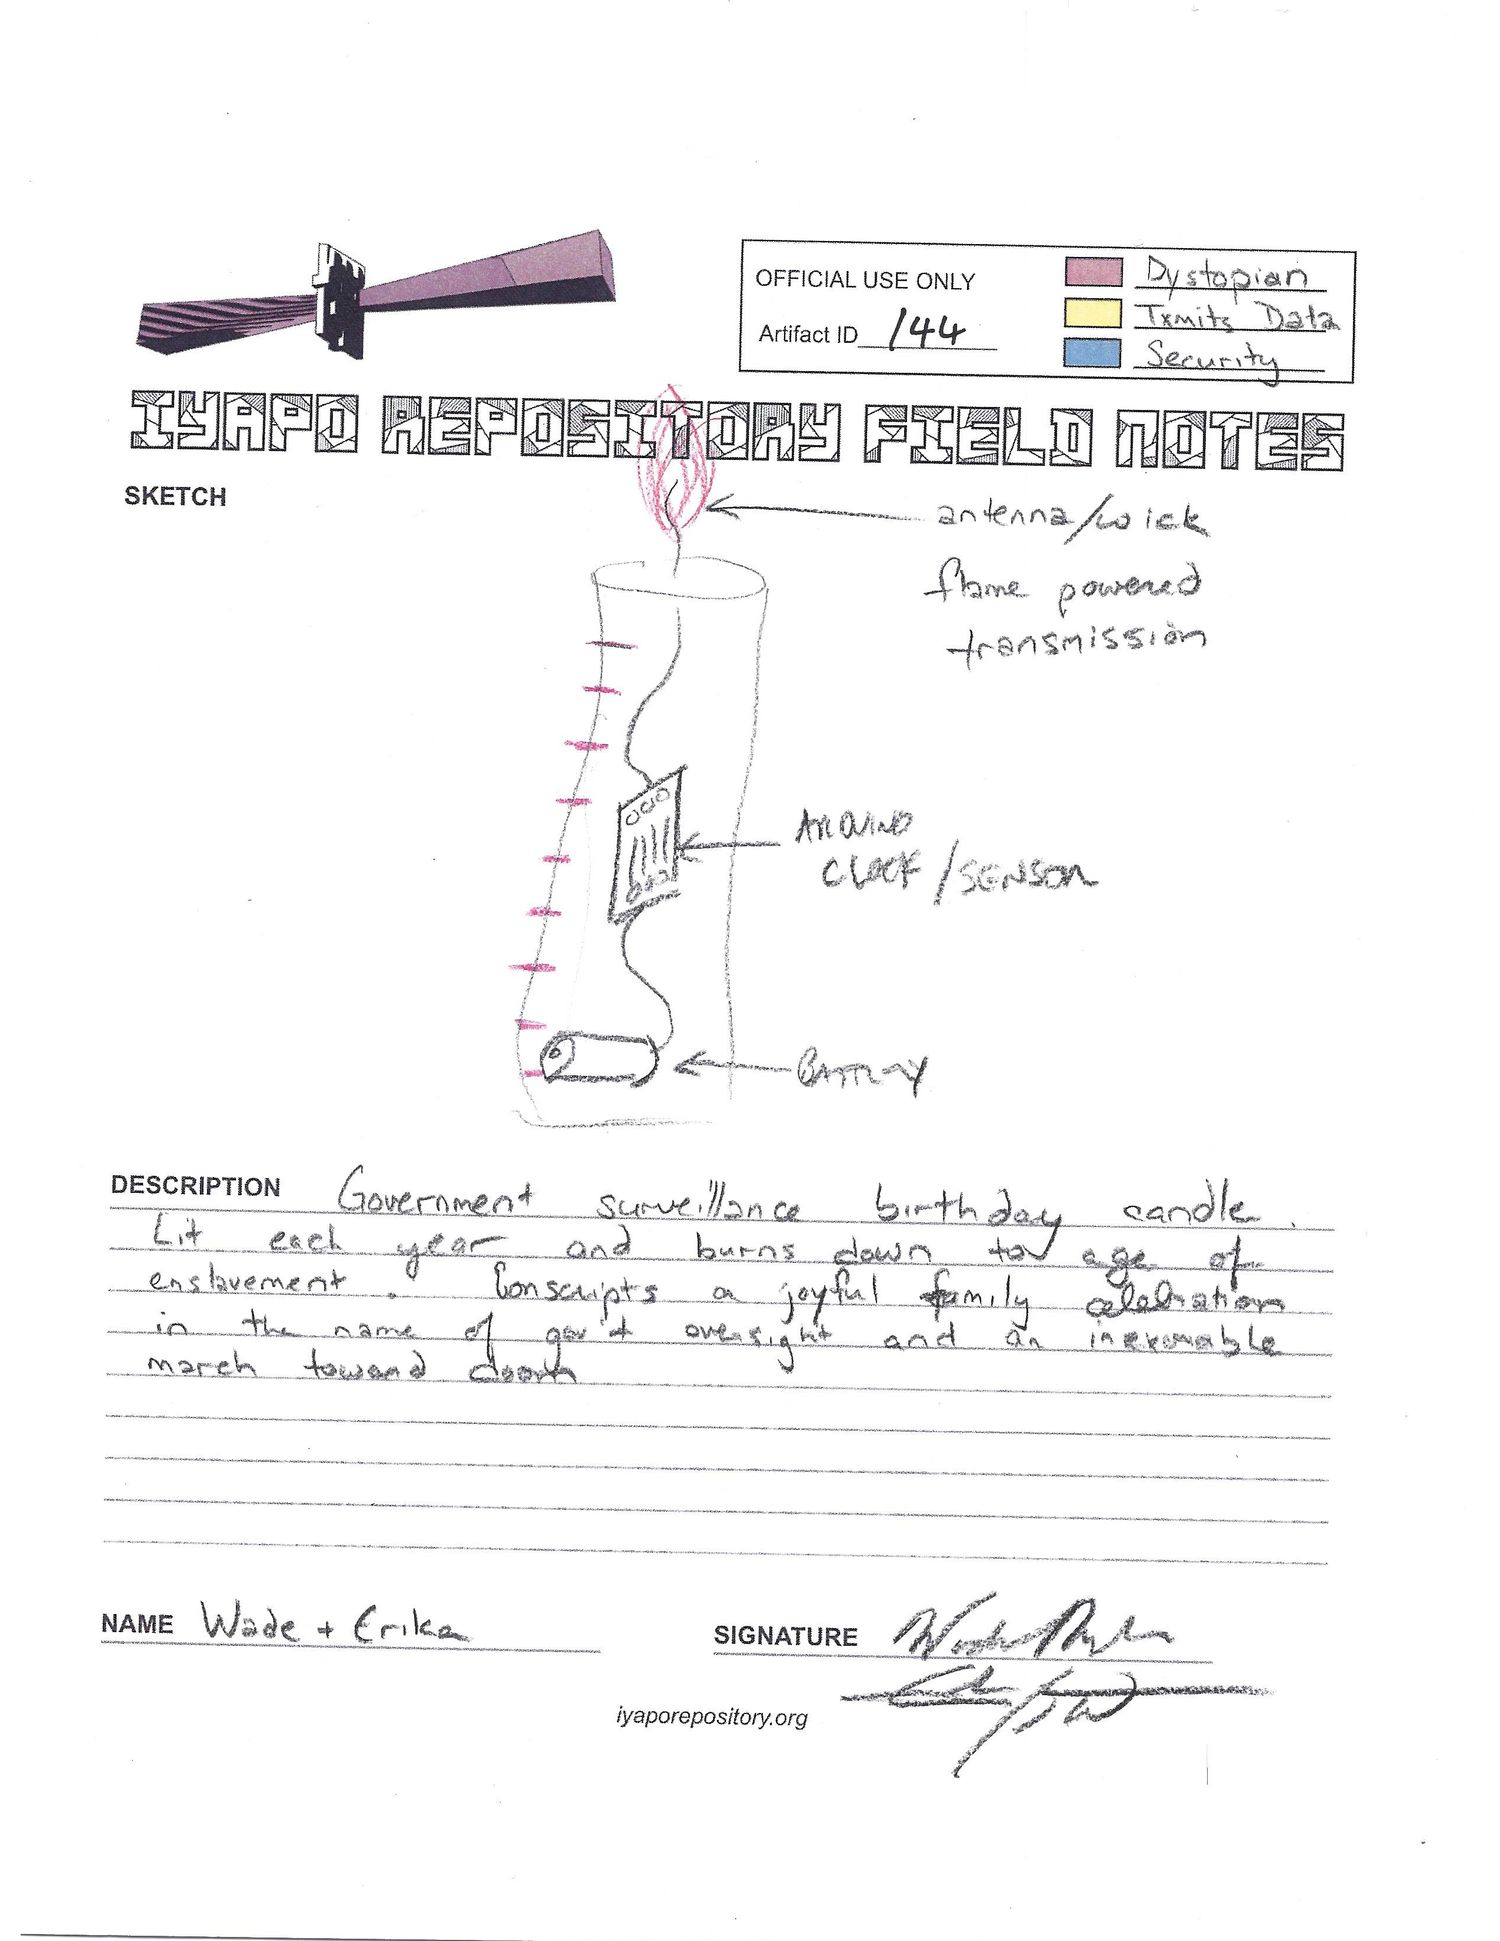 OFFICIAL USE ONLY
Artifact ID 144
Dystopian
Txmits Data
Security
IYAPO REPOSITORY FIELD NOTES
SKETCH
antenna/wick
flame powered
transmission
ARDUINO
CLOCK/SENSOR
BATTERY
DESCRIPTION Government surveillance birthday candle.
Lit each year and burns down to age of
enslavement. Conscripts a joyful family celebration
in the name of gov't oversight and an inexorable
march toward doom
NAME Wade + Erika
SIGNATURE
iyaporepository.org